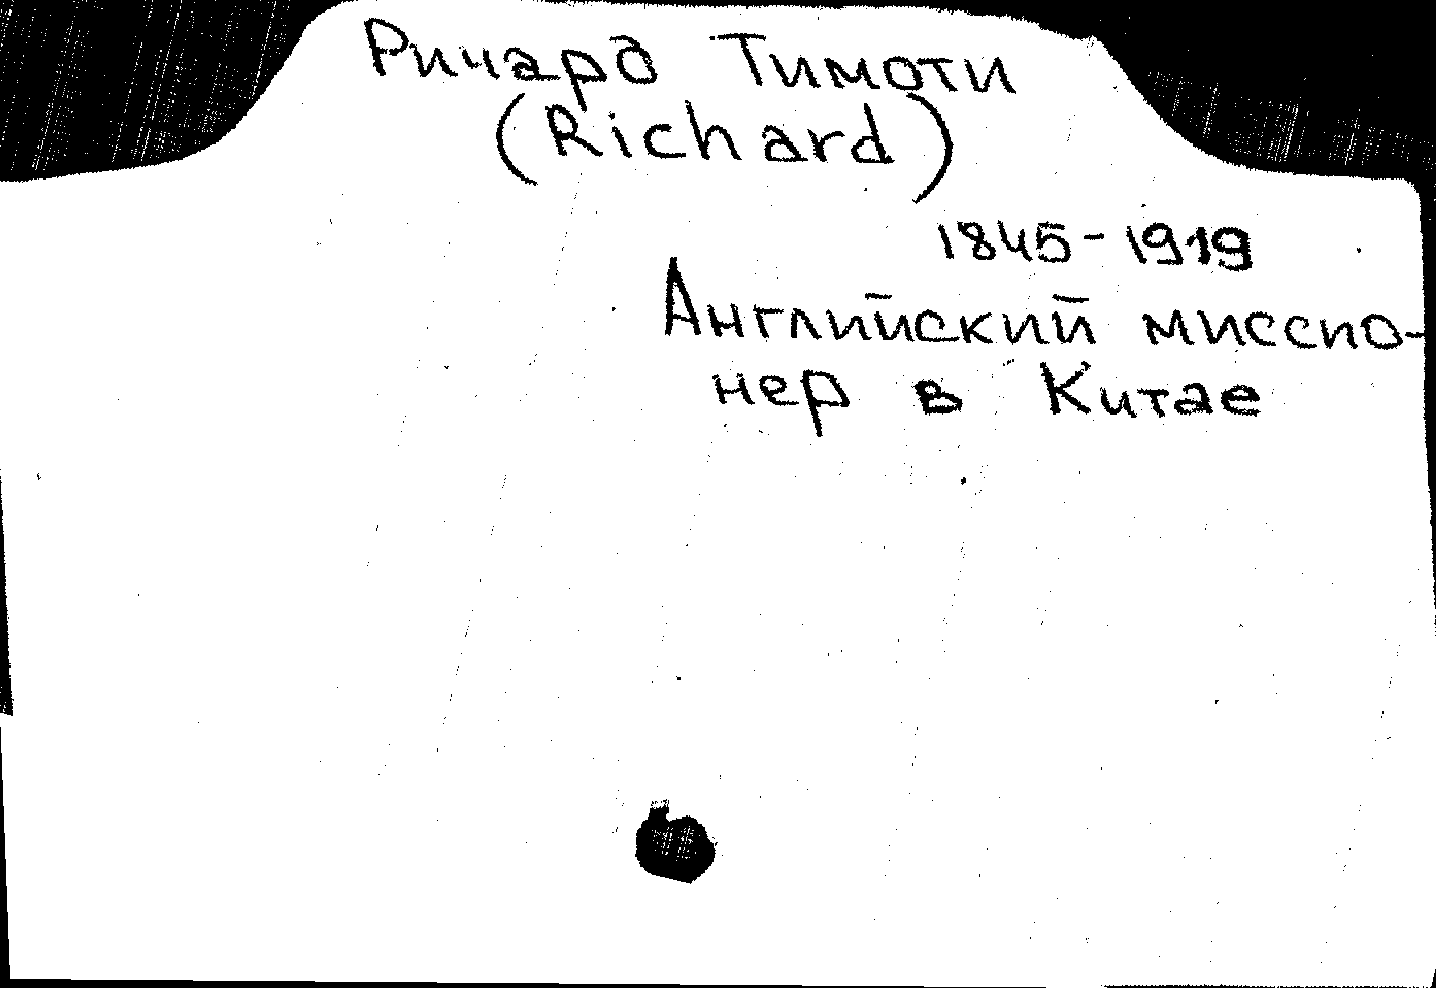 Ричард Тимоти
(Richard)
1845-1919
Английский миссио-
нер в Китае